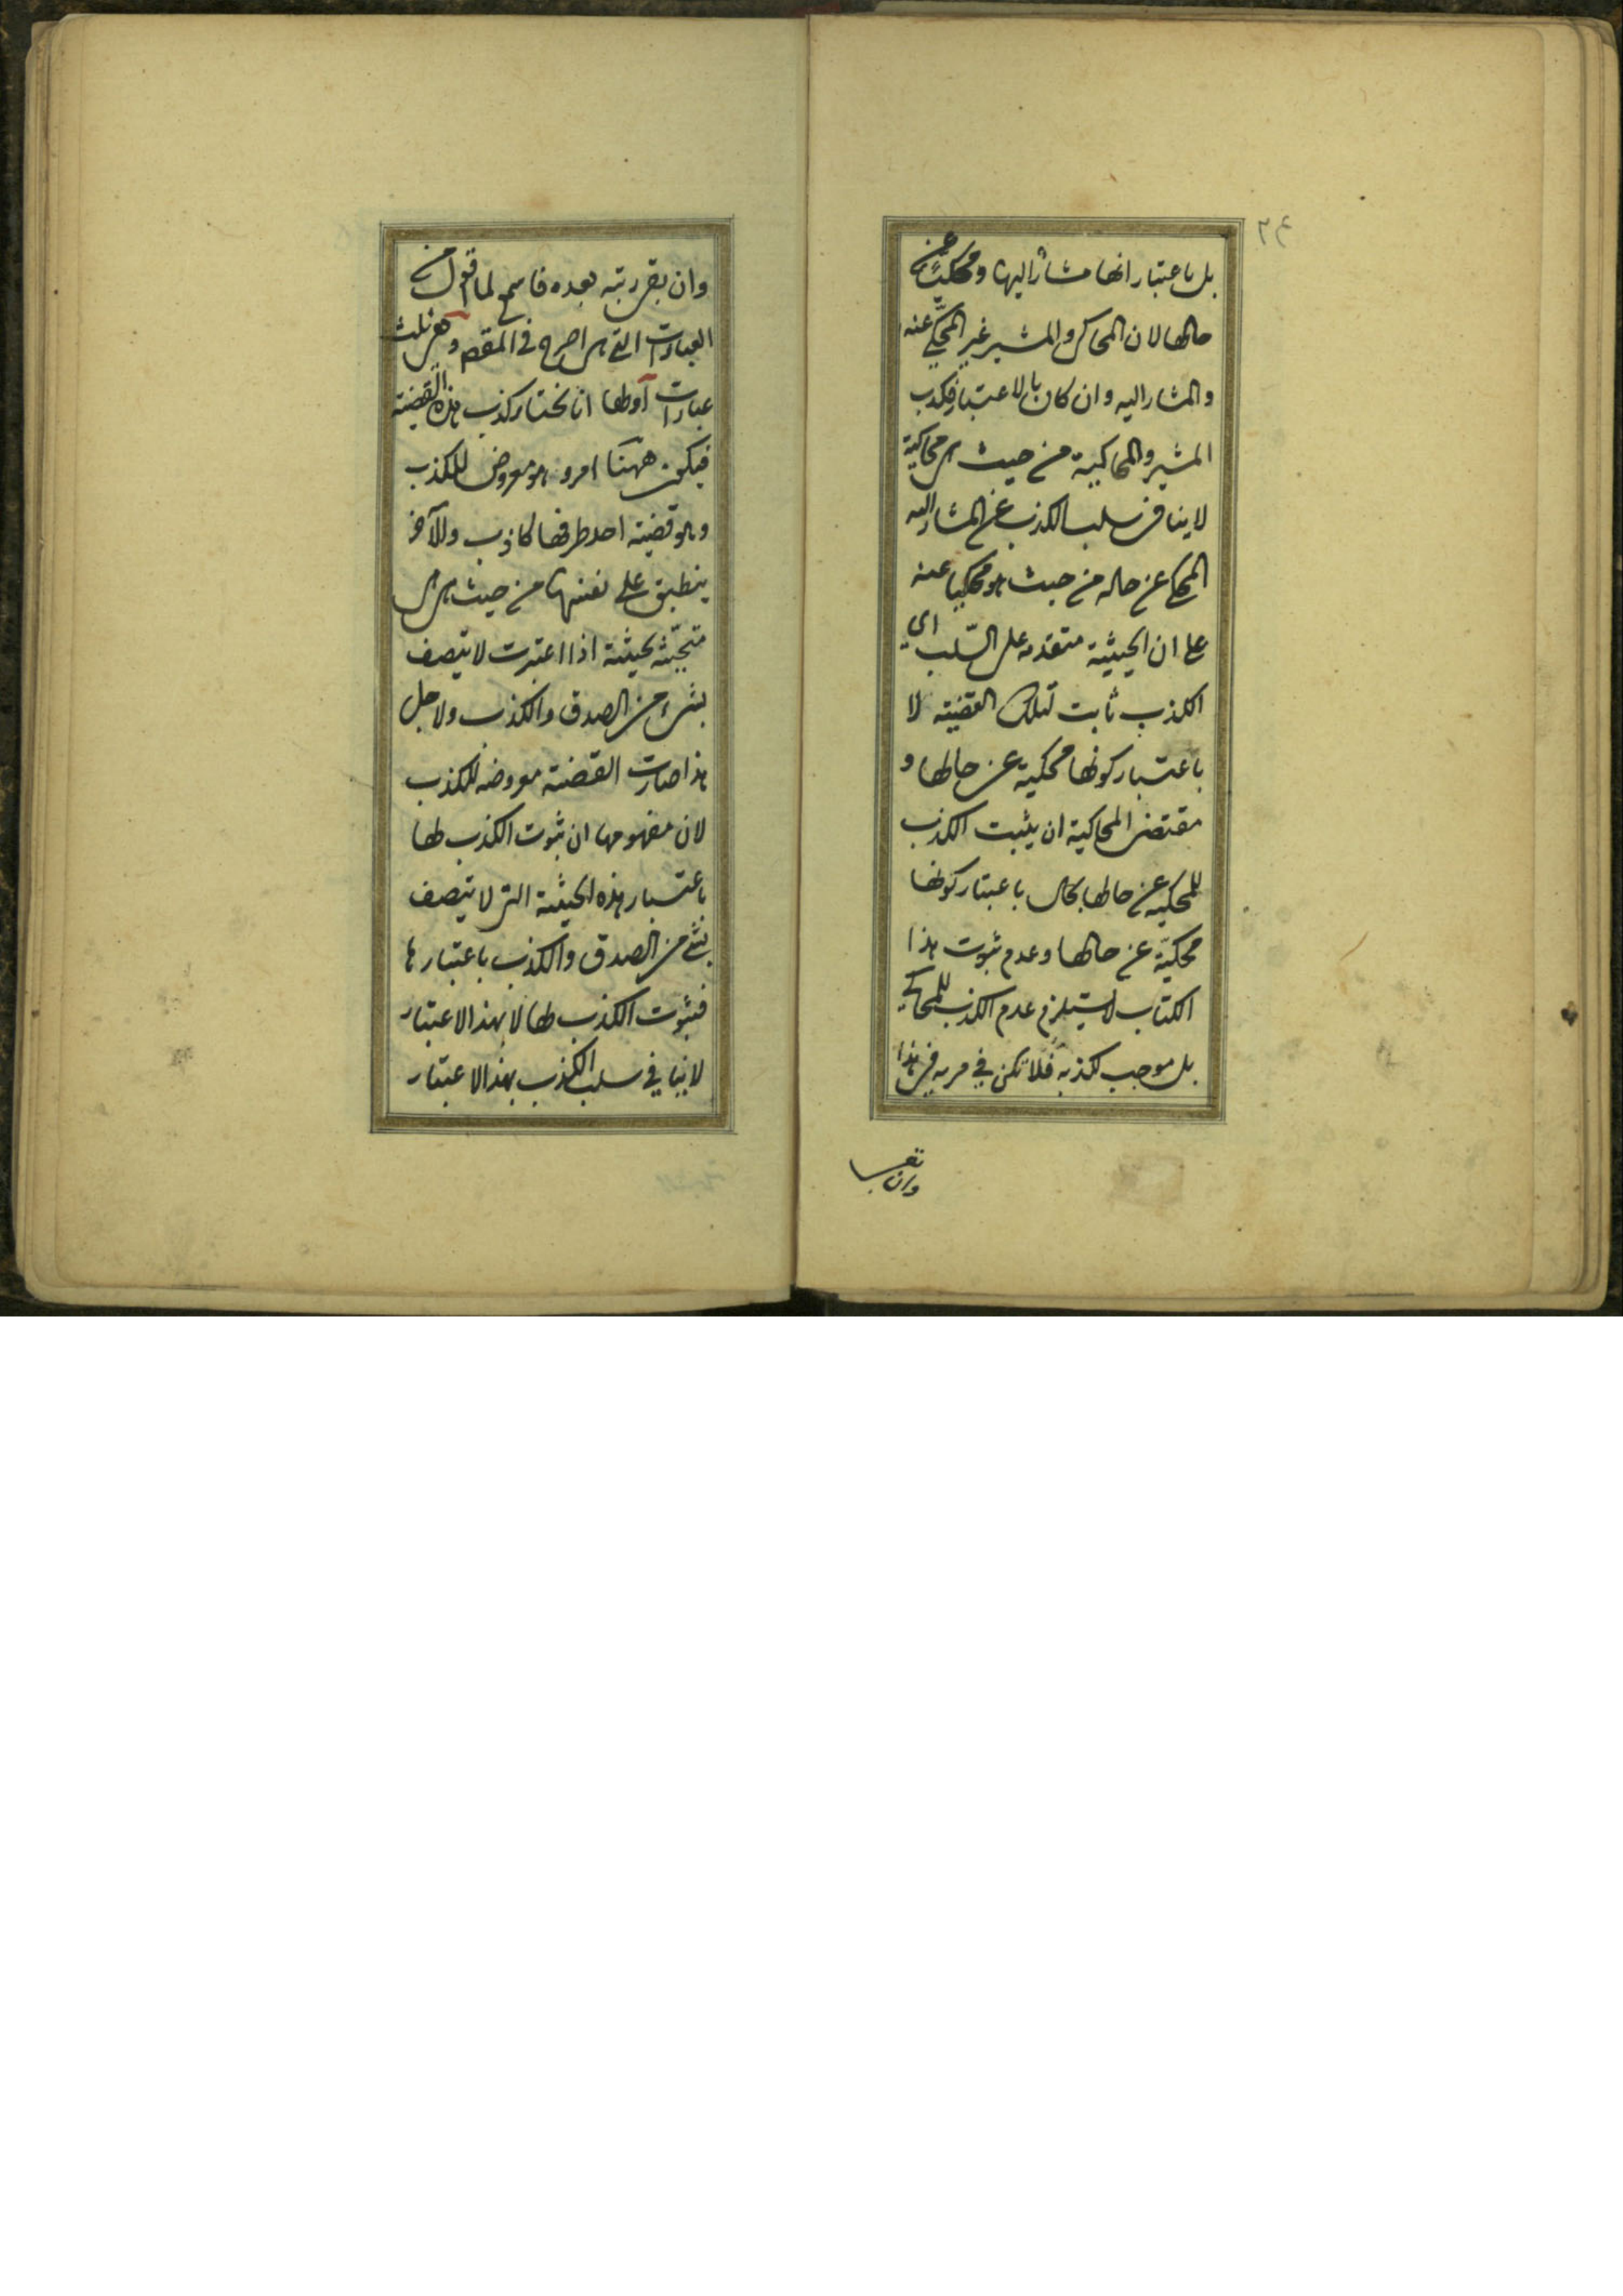 ٢٤
بل باعتبار انها مشار اليها ومحكية عن
حالها لان المحاكي والمشير غير المحكي عنه
والمشار اليه وان كان بالاعتبار فكذب
المشير والمحاكية من حيث هي محاكية
لا ينافي سلب الكذب عن المشار اليه
المحكي عن حاله من حيث هو محكيا عنه
على ان الحيثية متقدمه على السّلب اي
الكذب ثابت لتلك القضية لا
باعتبار كونها محكية عن حالها و
مقتضى المحاكية ان يثبت الكذب
للمحكية عن حالها بحال باعتبار كونها
محكية عن حالها وعدم ثبوت هذا
الكتاب لا يستلزم عدم الكذب للمحاكي
بل موجب لكذبه فلا تكن في مريه في هذا
وان بقي
وان بقي ريبة بعده فاسمع لما اقول من
العبارات التي هي اصرح في المقصد وهي ثلث
عبارات اولها انا نختار كذب هذه القضية
فيكون ههنا امر وهو معروض للكذب
وهو قضية احد طرفها كاذب والآخر
ينطبق على نفسها من حيث هي
متحيّثه بحيثية اذا اعتبرت لا يتصف
بشيء من الصدق والكذب ولاجل
هذا صارت القضية معروضه للكذب
لان مفهومها ان ثبوت الكذب لها
باعتبار هذه الحيثية التي لا يتصف
بشي من الصدق والكذب باعتبارها
فثبوت الكذب لها لا بهذا الاعتبار
لا ينافي سلب الكذب بهذا الاعتبار